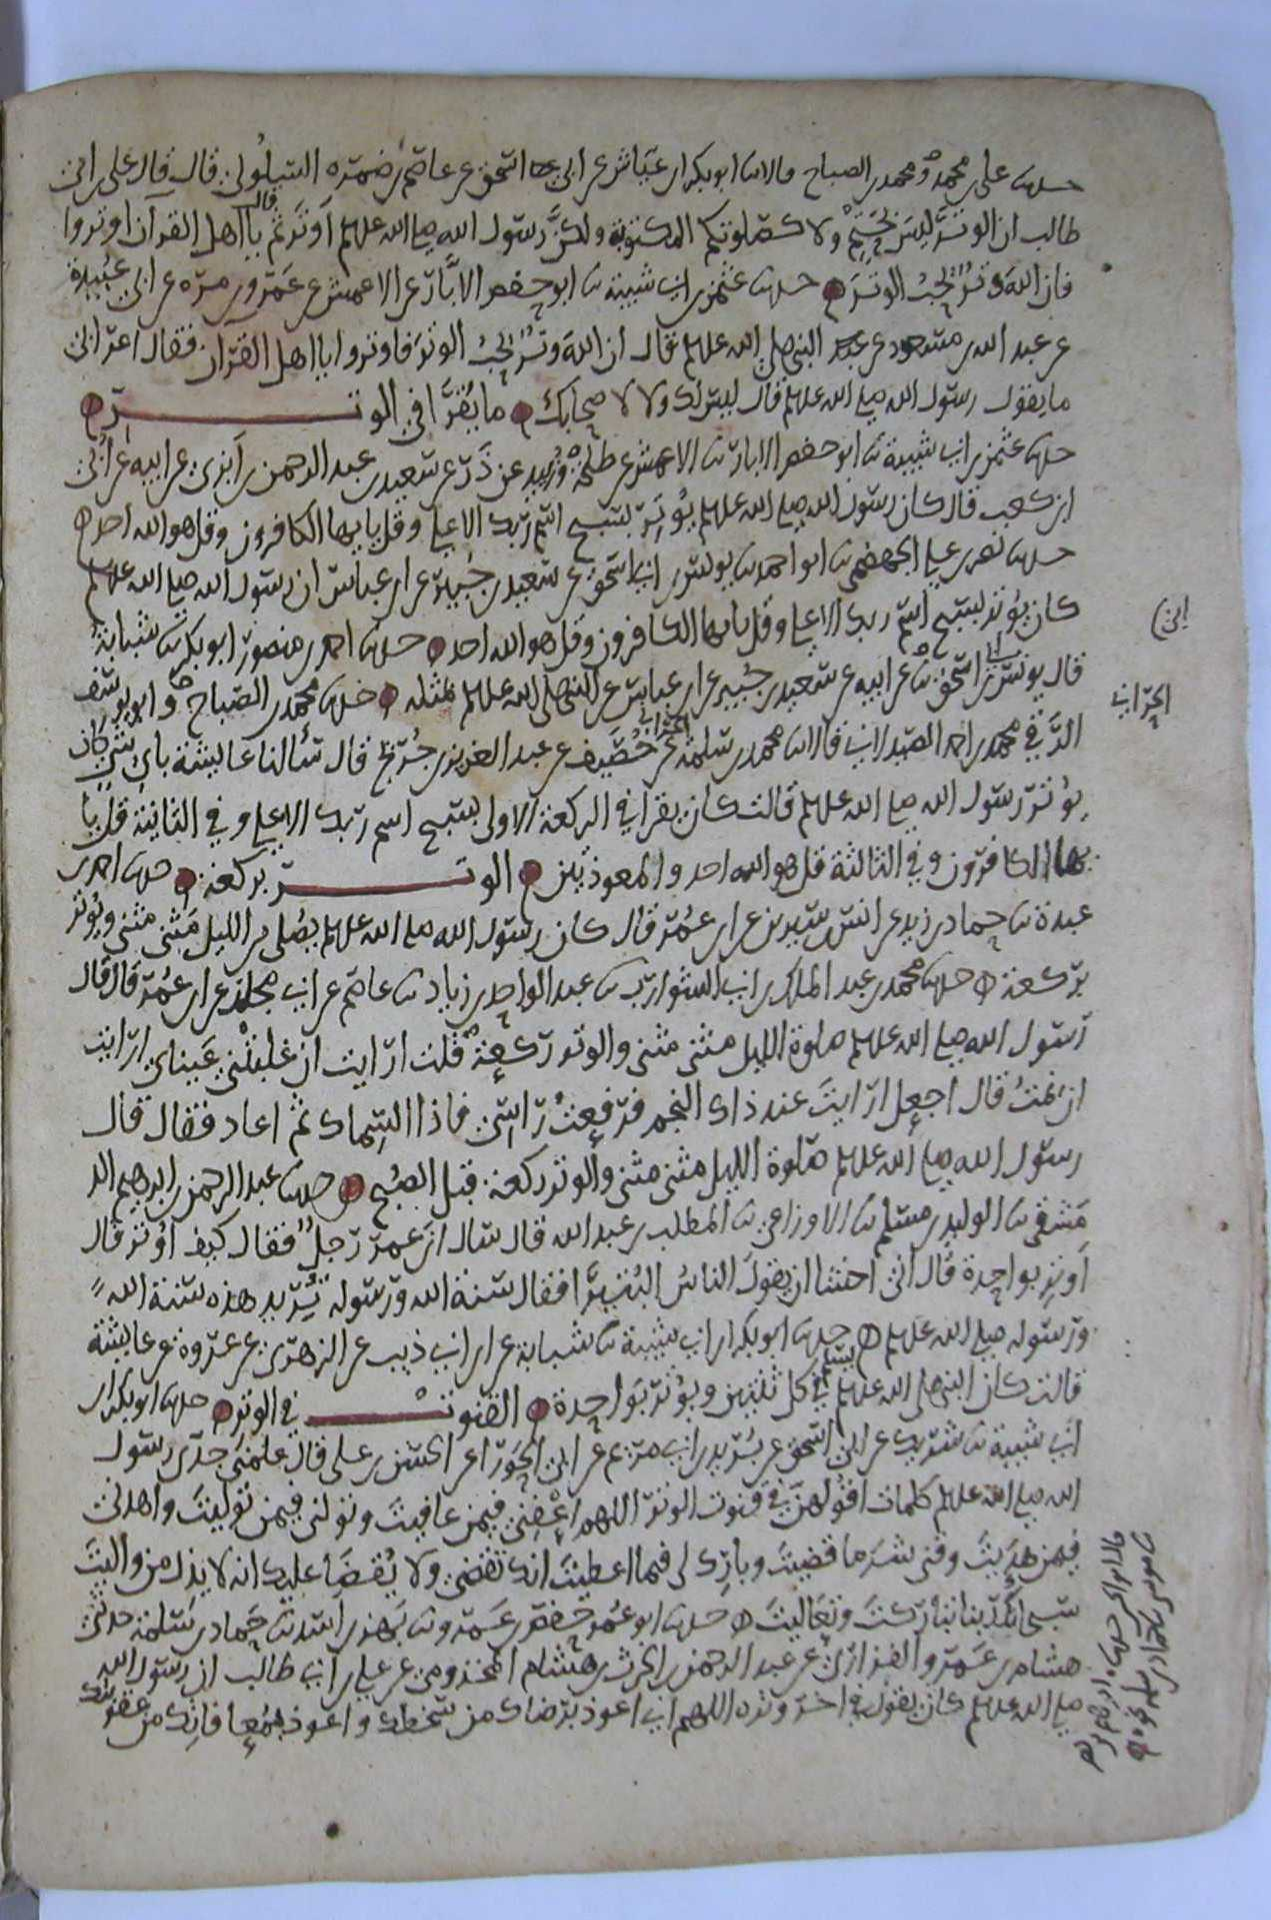 حدثنا على بن محمد ومحمد بن الصباح قالا ثنا ابو بكر بن عياش عن ابى اسحق عن عاصم بن ضمرة السلولى قال قال على بن ابى
طالب ان الوتر ليس بحتم ولا كصلوتكم المكتوبة ولكن رسول الله صلى الله عليه وسلم اوتر ثم قال يا اهل القرآن اوتروا
فان الله وتر يحب الوتر حدثنا عثمن بن ابى شيبة ثنا ابو حفص الابار عن الاعمش عن عمرو بن مرة عن ابى عبيدة
عن عبد الله بن مسعود عن النبى صلى الله عليه وسلم قال ان الله وتر يحب الوتر فاوتروا يا اهل القرآن فقال اعرابى
ما يقول رسول الله صلى الله عليه وسلم قال ليس لك ولا لاصحابك ما يقرا فى الوتر
حدثنا عثمن بن ابى شيبة ثنا ابو حفص الابار ثنا الاعمش عن طلحة وزبيد عن ذر عن سعيد بن عبد الرحمن بن ابزى عن ابيه عن ابى
ابن كعب قال كان رسول الله صلى الله عليه وسلم يوتر بسبح اسم ربك الاعلى وقل يايها الكافرون وقل هو الله احد
حدثنا نصر بن على الجهضمى ثنا ابو احمد ثنا يونس بن ابى اسحق عن سعيد بن جبير عن ابن عباس ان رسول الله صلى الله عليه وسلم
كان يوتر بسبح اسم ربك الاعلى وقل يايها الكافرون وقل هو الله احد حدثنا احمد بن منصور ابو بكر ثنا شبابة
قال يونس بن ابى اسحق ثنا عن ابيه عن سعيد بن جبير عن ابن عباس عن النبى صلى الله عليه وسلم بمثله حدثنا محمد بن الصباح وابو يوسف
الرقى محمد بن احمد الصيدلانى قالا ثنا محمد بن سلمة عن خصيف عن عبد العزيز بن جريج قال سألنا عايشة باى شى كان
يوتر رسول الله صلى الله عليه وسلم قالت كان يقرا فى الركعة الاولى بسبح اسم ربك الاعلى وفى الثانية قل يا
يها الكافرون وفى الثالثة قل هو الله احد والمعوذتين الوتر بركعة حدثنا احمد بن
عبدة ثنا حماد بن زيد عن انس بن سيرين عن ابن عمر قال كان رسول الله صلى الله عليه وسلم يصلى من الليل مثنى مثنى ويوتر
بركعة حدثنا محمد بن عبد الملك بن ابى الشوارب ثنا عبد الواحد بن زياد ثنا عاصم عن ابى مجلز عن ابن عمر قال قال
رسول الله صلى الله عليه وسلم صلوة الليل مثنى مثنى والوتر ركعة قلت ارايت ان غلبتنى عيناى ارايت
ان نمت قال اجعل ارايت عند ذاك النجم فرفعت راسى فاذا السماك ثم اعاد فقال قال
رسول الله صلى الله عليه وسلم صلوة الليل مثنى مثنى والوتر ركعة قبل الصبح حدثنا عبد الرحمن بن ابرهيم الد
مشقى ثنا الوليد بن مسلم ثنا الاوزاعى ثنا المطلب بن عبد الله قال سال ابن عمر رجل فقال كيف اوتر قال
اوتر بواحدة قال انى اخشا ان يقول الناس البتيرا فقال سنة الله ورسوله يريد هذه سنة الله
ورسوله صلى الله عليه وسلم حدثنا ابو بكر بن ابى شيبة ثنا شبابة عن ابن ابى ذيب عن الزهرى عن عروة عن عايشة
قالت كان النبى صلى الله عليه وسلم يسلم فى كل ثنتين ويوتر بواحدة القنوت فى الوتر حدثنا ابو بكر بن
ابى شيبة ثنا شريك عن ابى اسحق عن بريد بن ابى مريم عن ابى الحورا عن الحسن بن على قال علمنى جدى رسول
الله صلى الله عليه وسلم كلمات اقولهن فى قنوت الوتر اللهم عافنى فيمن عافيت وتولنى فيمن توليت واهدنى
فيمن هديت وقنى شر ما قضيت وبارك لى فيما اعطيت انك تقضى ولا يقضا عليك انه لا يذل من واليت
سبحانك ربنا تباركت وتعاليت حدثنا ابو عمر حفص بن عمرو ثنا بهز بن اسد ثنا حماد بن سلمة حدثنى
هشام بن عمرو الفزارى عن عبد الرحمن بن الحرث بن هشام المخزومى عن على بن ابى طالب ان رسول الله
صلى الله عليه وسلم كان يقول فى اخر وتره اللهم انى اعوذ برضاك من سخطك واعوذ بمعافاتك من عقوبتك